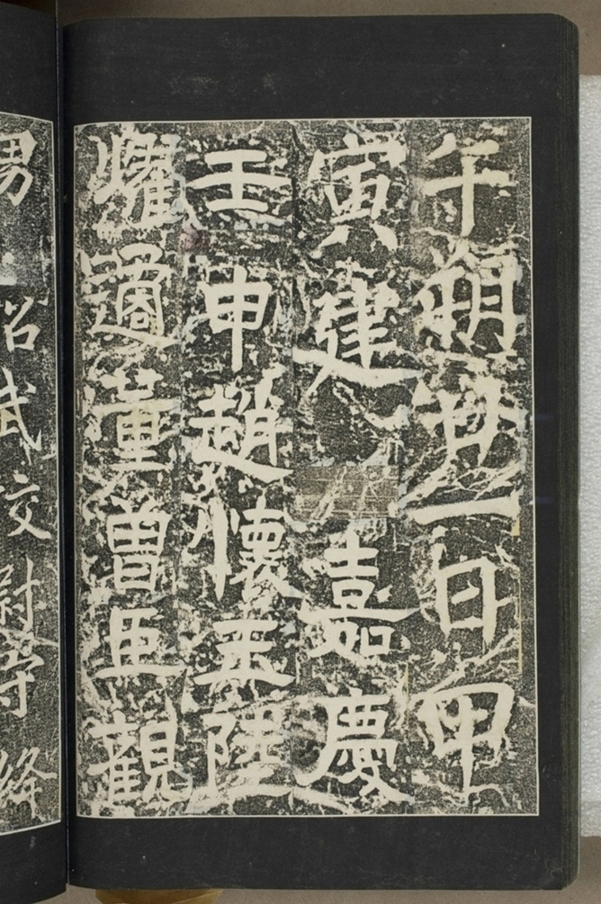 午朔廿一日甲
寅建 嘉慶
壬申趙懷玉陸
耀遹董曾臣觀
武 尉守絳